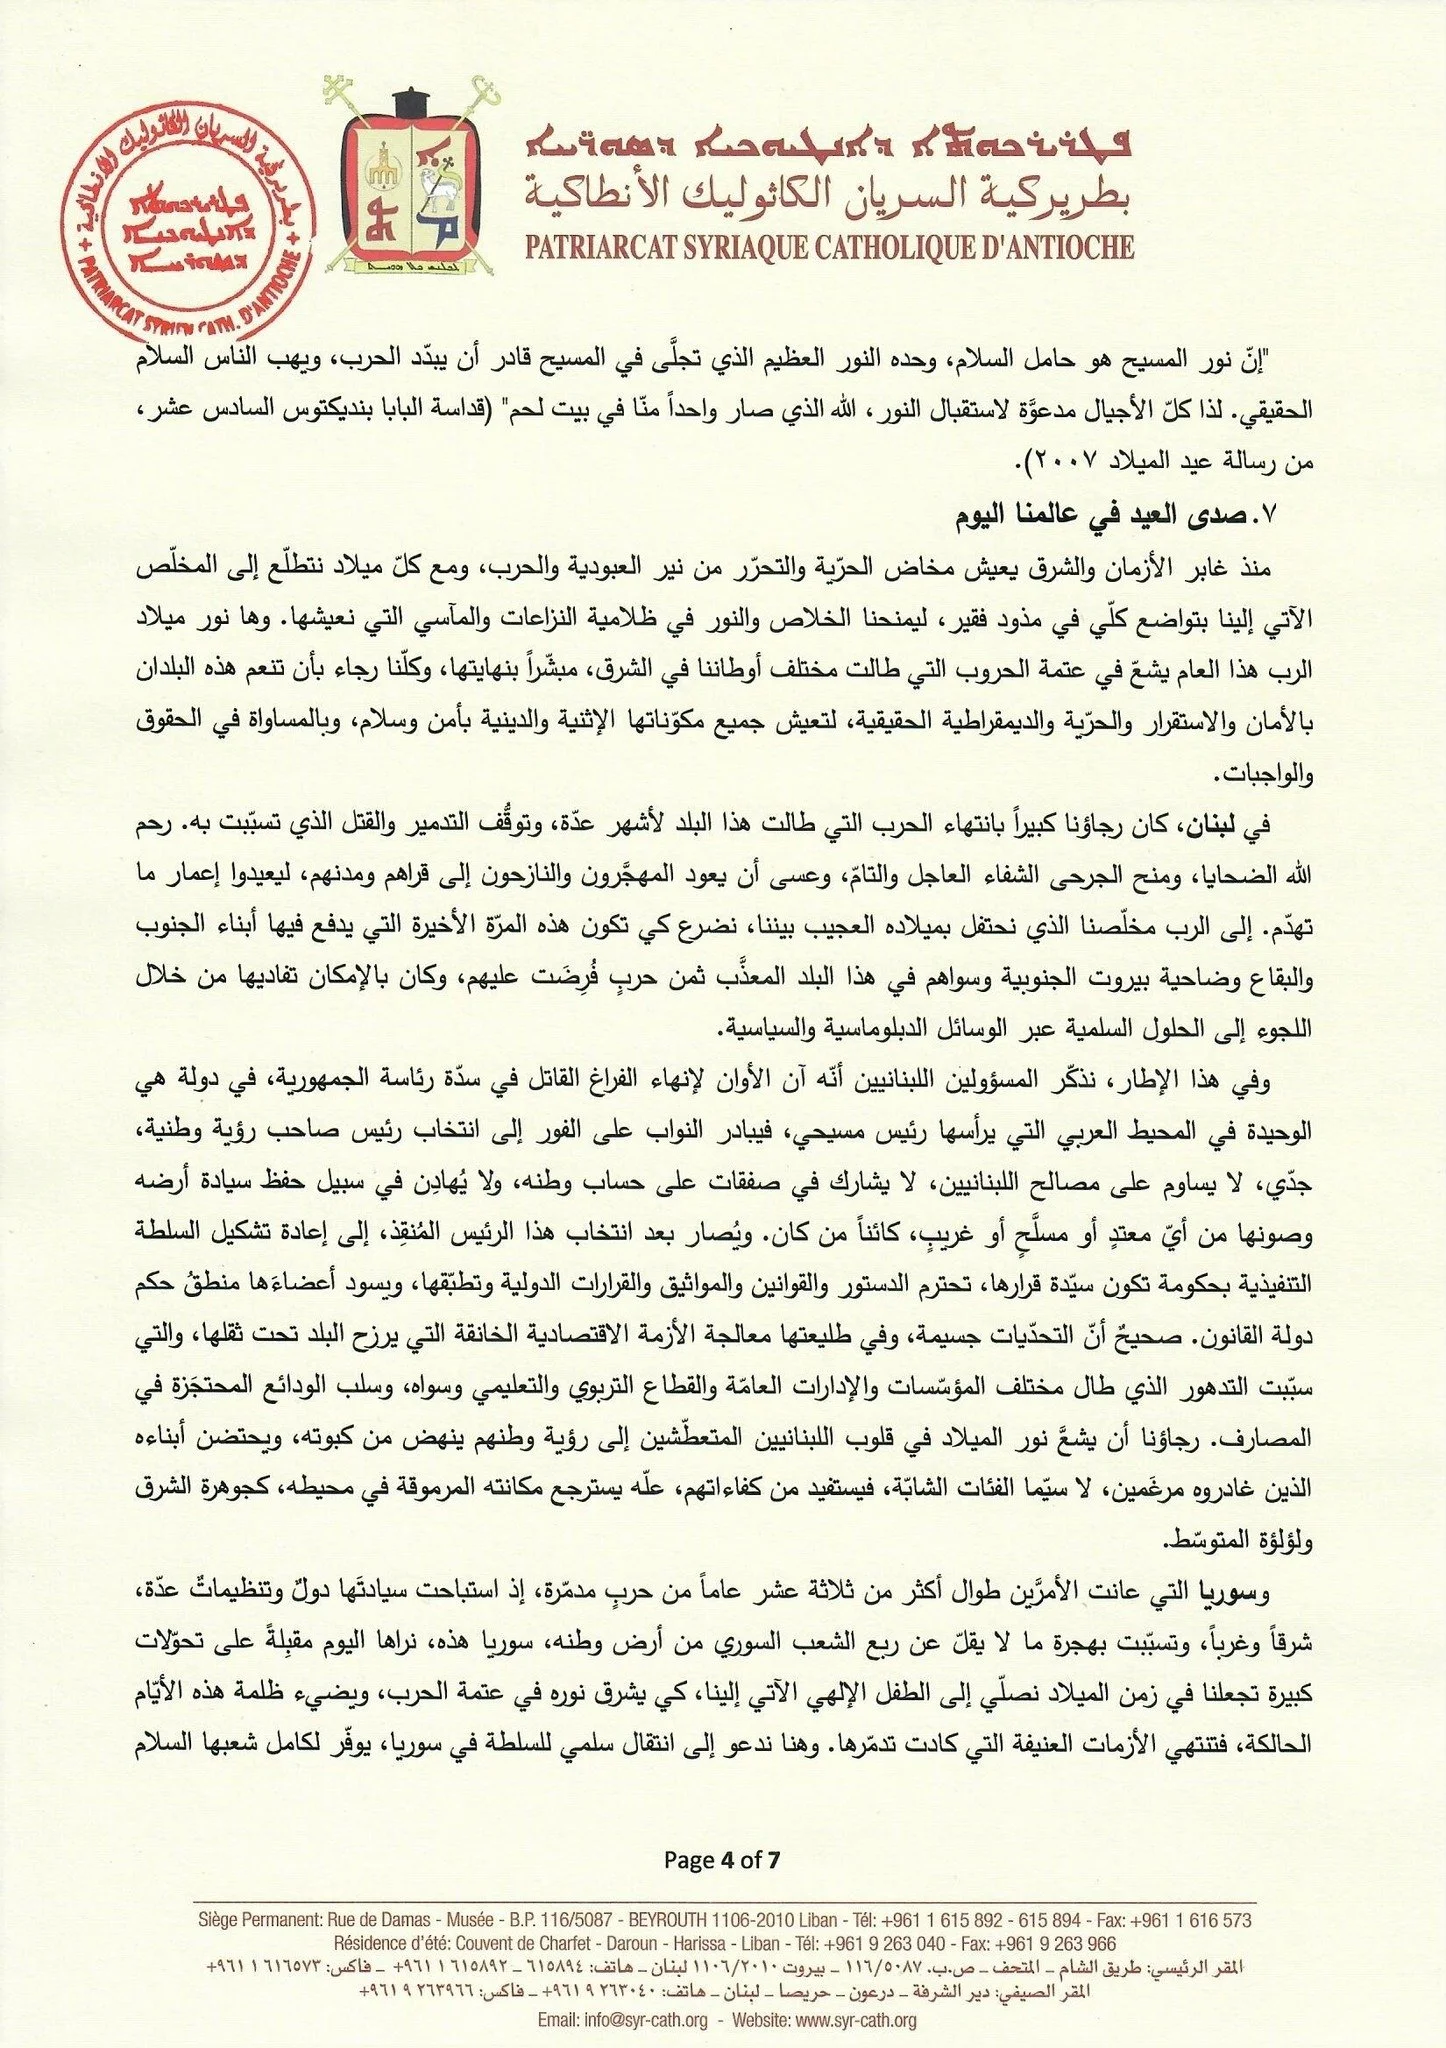 ܦܛܪܝܪܟܘܬܐ ܕܐܢܛܝܘܟܝܐ ܕܣܘܪܝܝܐ
بطريركية السريان الكاثوليك الأنطاكية
PATRIARCAT SYRIAQUE CATHOLIQUE D'ANTIOCHE
بطريركية السريان الكاثوليك الأنطاكية
PATRIARCAT SYRIEN CATH. D'ANTIOCHE
"إنّ نور المسيح هو حامل السلام، وحده النور العظيم الذي تجلَّى في المسيح قادر أن يبدّد الحرب، ويهب الناس السلام
الحقيقي. لذا كلّ الأجيال مدعوَّة لاستقبال النور، الله الذي صار واحداً منّا في بيت لحم" (قداسة البابا بنديكتوس السادس عشر،
من رسالة عيد الميلاد ٢٠٠٧).
٧. صدى العيد في عالمنا اليوم
منذ غابر الأزمان والشرق يعيش مخاض الحرّية والتحرّر من نير العبودية والحرب، ومع كلّ ميلاد نتطلّع إلى المخلّص
الآتي إلينا بتواضع كلّي في مذود فقير، ليمنحنا الخلاص والنور في ظلامية النزاعات والمآسي التي نعيشها. وها نور ميلاد
الرب هذا العام يشعّ في عتمة الحروب التي طالت مختلف أوطاننا في الشرق، مبشّراً بنهايتها، وكلّنا رجاء بأن تنعم هذه البلدان
بالأمان والاستقرار والحرّية والديمقراطية الحقيقية، لتعيش جميع مكوّناتها الإثنية والدينية بأمن وسلام، وبالمساواة في الحقوق
والواجبات.
في لبنان، كان رجاؤنا كبيراً بانتهاء الحرب التي طالت هذا البلد لأشهر عدّة، وتوقُّف التدمير والقتل الذي تسبّبت به. رحم
الله الضحايا، ومنح الجرحى الشفاء العاجل والتامّ، وعسى أن يعود المهجَّرون والنازحون إلى قراهم ومدنهم، ليعيدوا إعمار ما
تهدّم. إلى الرب مخلّصنا الذي نحتفل بميلاده العجيب بيننا، نضرع كي تكون هذه المرّة الأخيرة التي يدفع فيها أبناء الجنوب
والبقاع وضاحية بيروت الجنوبية وسواهم في هذا البلد المعذَّب ثمن حربٍ فُرِضَت عليهم، وكان بالإمكان تفاديها من خلال
اللجوء إلى الحلول السلمية عبر الوسائل الدبلوماسية والسياسية.
وفي هذا الإطار، نذكّر المسؤولين اللبنانيين أنّه آن الأوان لإنهاء الفراغ القاتل في سدّة رئاسة الجمهورية، في دولة هي
الوحيدة في المحيط العربي التي يرأسها رئيس مسيحي، فيبادر النواب على الفور إلى انتخاب رئيس صاحب رؤية وطنية،
جدّي، لا يساوم على مصالح اللبنانيين، لا يشارك في صفقات على حساب وطنه، ولا يُهادِن في سبيل حفظ سيادة أرضه
وصونها من أيّ معتدٍ أو مسلَّحٍ أو غريبٍ، كائناً من كان. ويُصار بعد انتخاب هذا الرئيس المُنقِذ، إلى إعادة تشكيل السلطة
التنفيذية بحكومة تكون سيّدة قرارها، تحترم الدستور والقوانين والمواثيق والقرارات الدولية وتطبّقها، ويسود أعضاءَها منطقُ حكم
دولة القانون. صحيحٌ أنّ التحدّيات جسيمة، وفي طليعتها معالجة الأزمة الاقتصادية الخانقة التي يرزح البلد تحت ثقلها، والتي
سبّبت التدهور الذي طال مختلف المؤسّسات والإدارات العامّة والقطاع التربوي والتعليمي وسواه، وسلب الودائع المحتجَزة في
المصارف. رجاؤنا أن يشعَّ نور الميلاد في قلوب اللبنانيين المتعطّشين إلى رؤية وطنهم ينهض من كبوته، ويحتضن أبناءه
الذين غادروه مرغَمين، لا سيّما الفئات الشابّة، فيستفيد من كفاءاتهم، علّه يسترجع مكانته المرموقة في محيطه، كجوهرة الشرق
ولؤلؤة المتوسّط.
وسوريا التي عانت الأمرَّين طوال أكثر من ثلاثة عشر عاماً من حربٍ مدمّرة، إذ استباحت سيادتَها دولٌ وتنظيماتٌ عدّة،
شرقاً وغرباً، وتسبّبت بهجرة ما لا يقلّ عن ربع الشعب السوري من أرض وطنه، سوريا هذه، نراها اليوم مقبِلةً على تحوّلات
كبيرة تجعلنا في زمن الميلاد نصلّي إلى الطفل الإلهي الآتي إلينا، كي يشرق نوره في عتمة الحرب، ويضيء ظلمة هذه الأيّام
الحالكة، فتنتهي الأزمات العنيفة التي كادت تدمّرها. وهنا ندعو إلى انتقال سلمي للسلطة في سوريا، يوفّر لكامل شعبها السلام
Page 4 of 7
Siège Permanent: Rue de Damas - Musée - B.P. 116/5087 - BEYROUTH 1106-2010 Liban - Tél: +961 1 615 892 - 615 894 - Fax: +961 1 616 573
Résidence d'été: Couvent de Charfet - Daroun - Harissa - Liban - Tél: +961 9 263 040 - Fax: +961 9 263 966
المقر الرئيسي: طريق الشام ـ المتحف ـ ص.ب. ١١٦/٥٠٨٧ ـ بيروت ١١٠٦/٢٠١٠ لبنان ـ هاتف: ٦١٥٨٩٤ ـ ٦١٥٨٩٢ ١ ٩٦١+ ـ فاكس: ٦١٦٥٧٣ ١ ٩٦١+
المقر الصيفي: دير الشرفة ـ درعون ـ حريصا ـ لبنان ـ هاتف: ٢٦٣٠٤٠ ٩ ٩٦١+ ـ فاكس: ٢٦٣٩٦٦ ٩ ٩٦١+
Email: info@syr-cath.org - Website: www.syr-cath.org